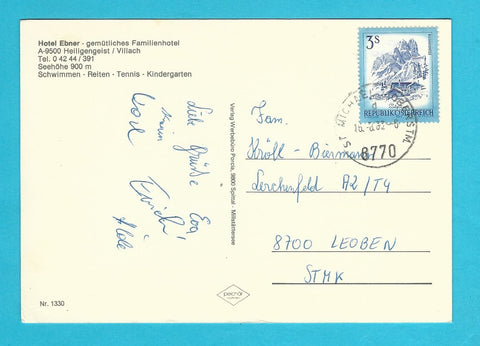 Hotel Ebner - gemütliches Familienhotel
A-9500 Heiligengeist / Villach
Tel. 0 42 44 / 391
Seehöhe 900 m
Schwimmen - Reiten - Tennis - Kindergarten
Liebe Grüße Eva
Erich
Verlag Werbebüro Porcia, 9800 Spittal - Millstättersee
3 S
REPUBLIK ÖSTERREICH
ST MICHAEL
8770
Fam.
Kröll - Biermann
Lerchenfeld A2/T4
8700 LEOBEN
STMK
Nr. 1330